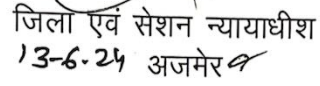 जिला एवं सेशन न्यायाधीश
13-6-24 अजमेर